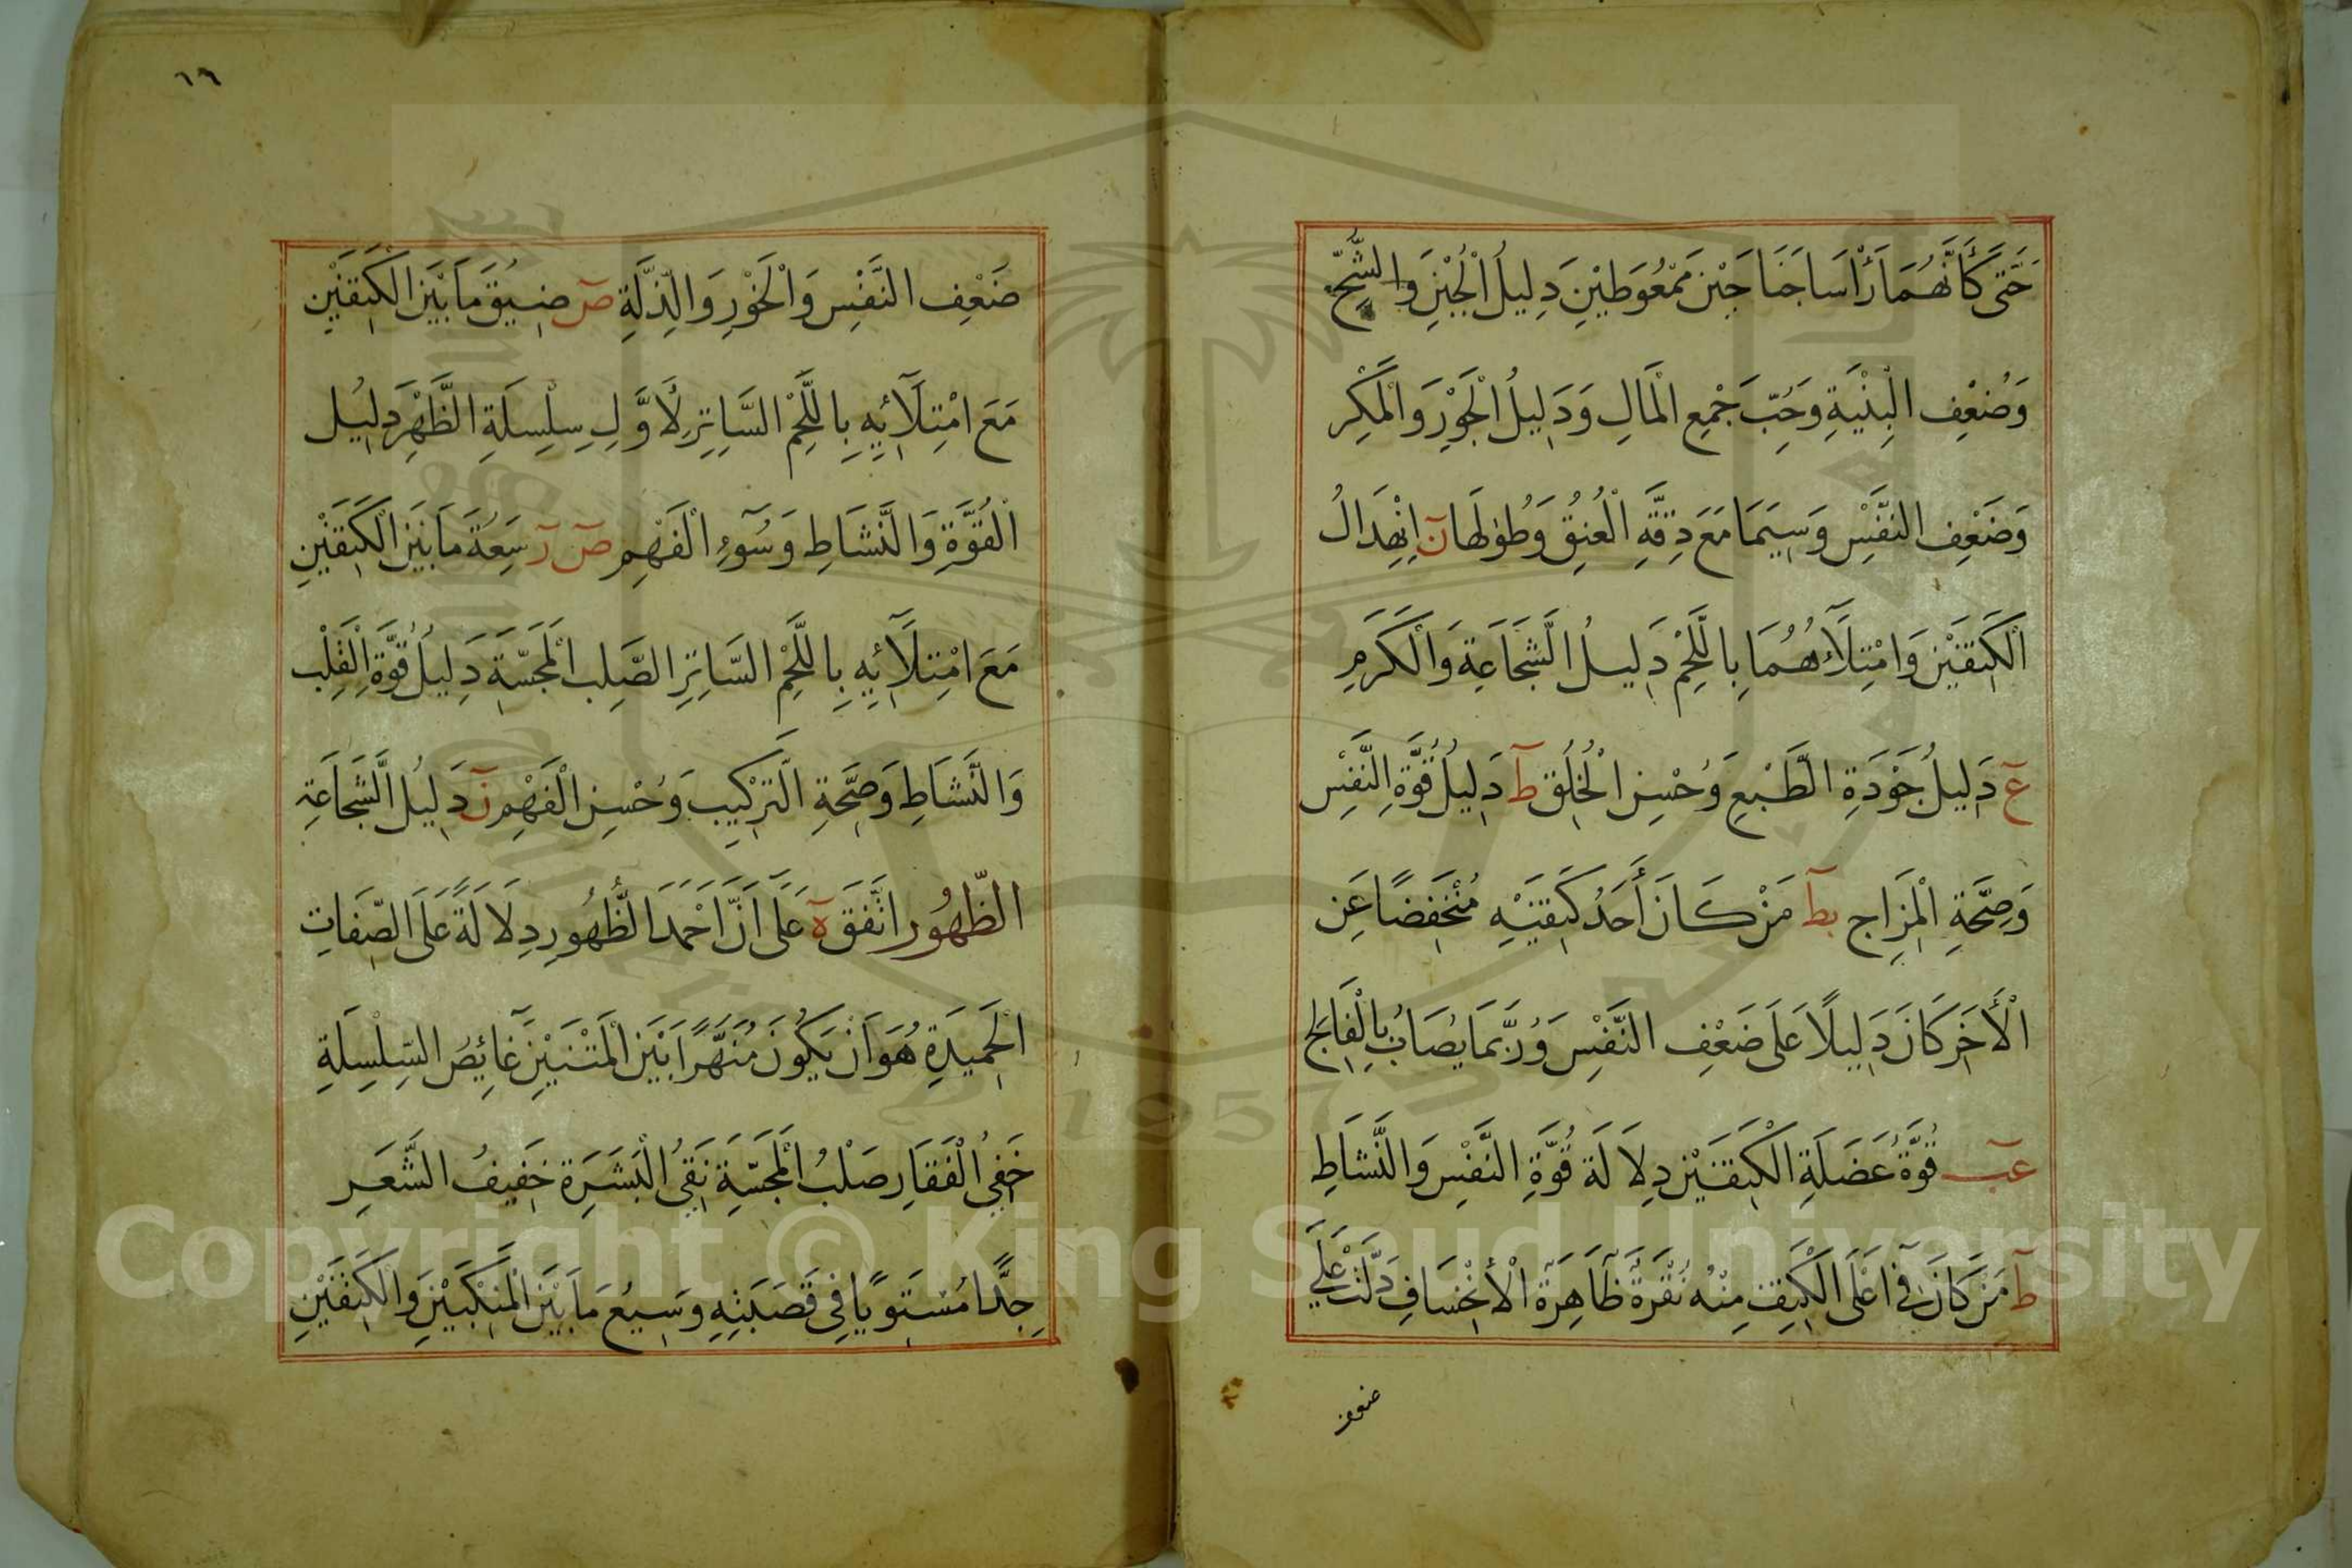 حَتَّى كَأَنَّهُمَا رَأْسَا جَنَاحَيْنِ مَمْعُوطَيْنِ دَلِيلُ الْجُبْنِ وَالشُّحِّ
وَضُعْفِ الْبِنْيَةِ وَحُبِّ جَمْعِ الْمَالِ وَدَلِيلُ الْجَوْرِ وَالْمَكْرِ
وَضَعْفِ النَّفْسِ وَسِيَمَا مَعَ دِقَّةِ الْعُنُقِ وَطُولِهَا نٓ اِنْهِدَالُ
الْكَتِفَيْنِ وَامْتِلَآؤُهُمَا بِاللَّحْمِ دَلِيلُ الشَّجَاعَةِ وَالْكَرَمِ
عٓ دَلِيلُ جَوْدَةِ الطَّبْعِ وَحُسْنِ الْخُلُقِ طٓ دَلِيلُ قُوَّةِ النَّفْسِ
وَصِحَّةِ الْمِزَاجِ بطٓ مَنْ كَانَ أَحَدُ كَتِفَيْهِ مُنْخَفِضًا عَنِ
الْأَخَرِ كَانَ دَلِيلًا عَلَى ضَعْفِ النَّفْسِ وَرُبَّمَا يُصَابُ بِالْفَالِجِ
عبٓ قُوَّةُ عَضَلَةِ الْكَتِفَيْنِ دِلَالَة قُوَّةِ النَّفْسِ وَالنَّشَاطِ
طٓ مَنْ كَانَ فِي اَعْلَى الْكَتِفِ مِنْهُ نُقْرَةٌ ظَاهِرَةُ الْأنْخِسَافِ دَلَّتْ عَلَى
ضعف
١٦
ضَعْفِ النَّفْسِ وَالْخَوْرِ وَالذِّلَّةِ صٓ ضِيقُ مَا بَيْنَ الْكَتِفَيْنِ
مَعَ امْتِلَآئِهِ بِاللَّحْمِ السَّاتِرِ لَأَوَّلِ سِلْسِلَةِ الظَّهْرِ دَلِيلُ
الْقُوَّةِ وَالنَّشَاطِ وَسُوٓءِ الْفَهْمِ صٓ رٓ سَعَةُ مَا بَيْنَ الْكَتِفَيْنِ
مَعَ امْتِلَآئِهِ بِاللَّحْمِ السَّاتِرِ الصَّلِبِ الْمَجَسَّةِ دَلِيلُ قُوَّةِ الْقَلْبِ
وَالنَّشَاطِ وَصِحَّةِ التَرْكِيبِ وَحُسْنِ الْفَهْمِ نٓ دَلِيلُ الشَّجَاعَةِ
الظُّهُورِ اتَّفَقَ هٓ عَلَى اَنَّ اَحْمَدَ الظُّهُورِ دِلَالَةً عَلَى الصِّفَاتِ
الْحَمِيدَةِ هُوَ اَنْ يَكُونَ مُنَهَّرًا بَيْنَ الْمَتْنَيْنِ غَائِصُ السِّلْسِلَةِ
خَفِيُ الْفَقَارِ صَلْبُ الْمَجَسَّةِ نَقِيُ الْبَشَرَةِ خَفِيفُ الشَّعَرِ
جِدًّا مُسْتَوِيًا فِي قَصَبَتِهِ وَسِيعُ مَا بَيْنَ الْمَنْكِبَيْنِ وَالْكَتِفَيْنِ
Copyright © King Saud University
1957